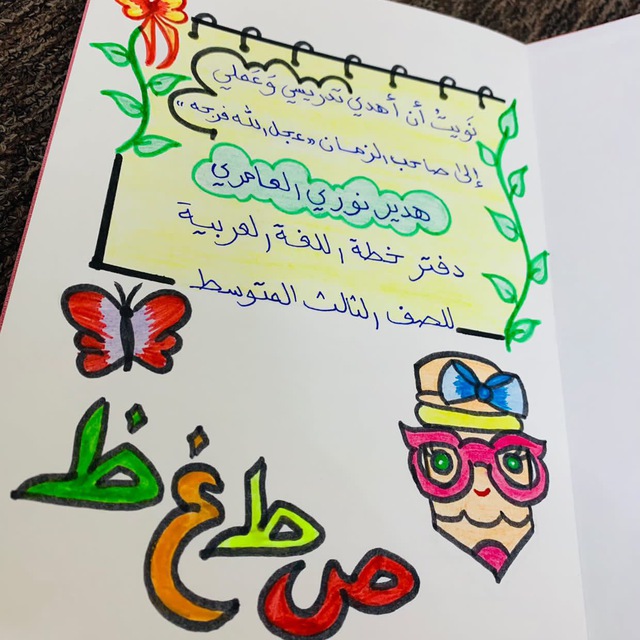 نَويتْ أن أهدي تدريسي وَعَملي
إلى صاحب الزمان «عجل الله فرجه»
هدير نوري العامري
دفتر خطة اللغة العربية
للصف الثالث المتوسط
ظ غ ط ص